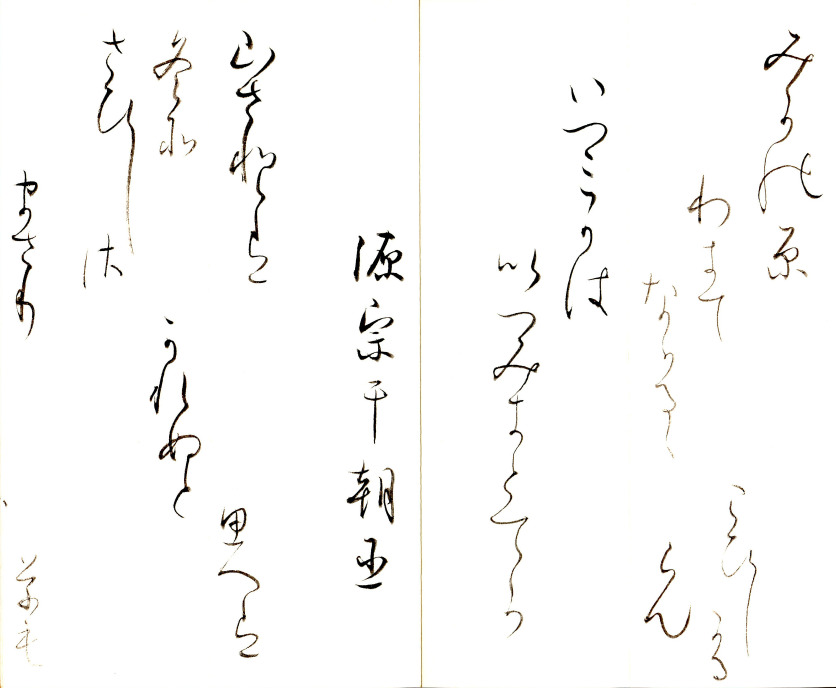 みかの原
わきて
なかるゝ
いつみかは
いつみきとてか
こひしかる
らん
源宗于朝臣
山さとは
冬そ
さひしさ
まさり
草も
かれぬと
思へは